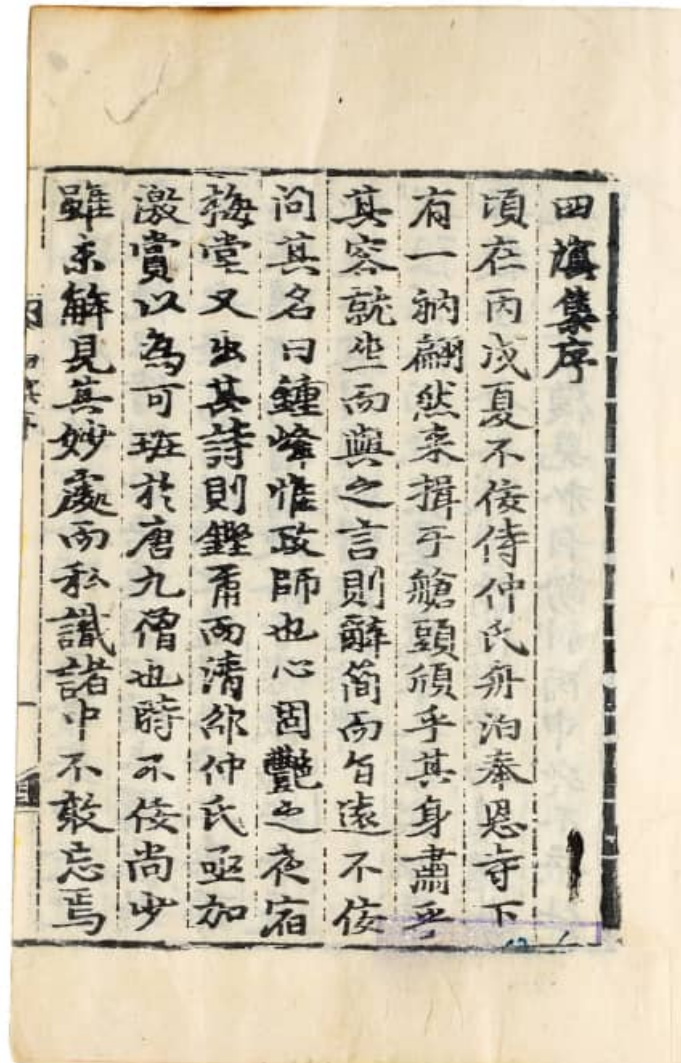 四溟集序
頃在丙戌夏不佞侍仲氏舟泊奉恩寺下
有一衲翩然来揖于艙頭頎乎其身肅乎
其容就坐而與之言則辭簡而旨遠不佞
問其名曰鍾峰惟政師也心固艷之夜宿
梅堂又出其詩則鏗爾而清邵仲氏亟加
激賞以為可班於唐九僧也時不佞尚少
雖未解見其妙處而私識諸中不敢忘焉